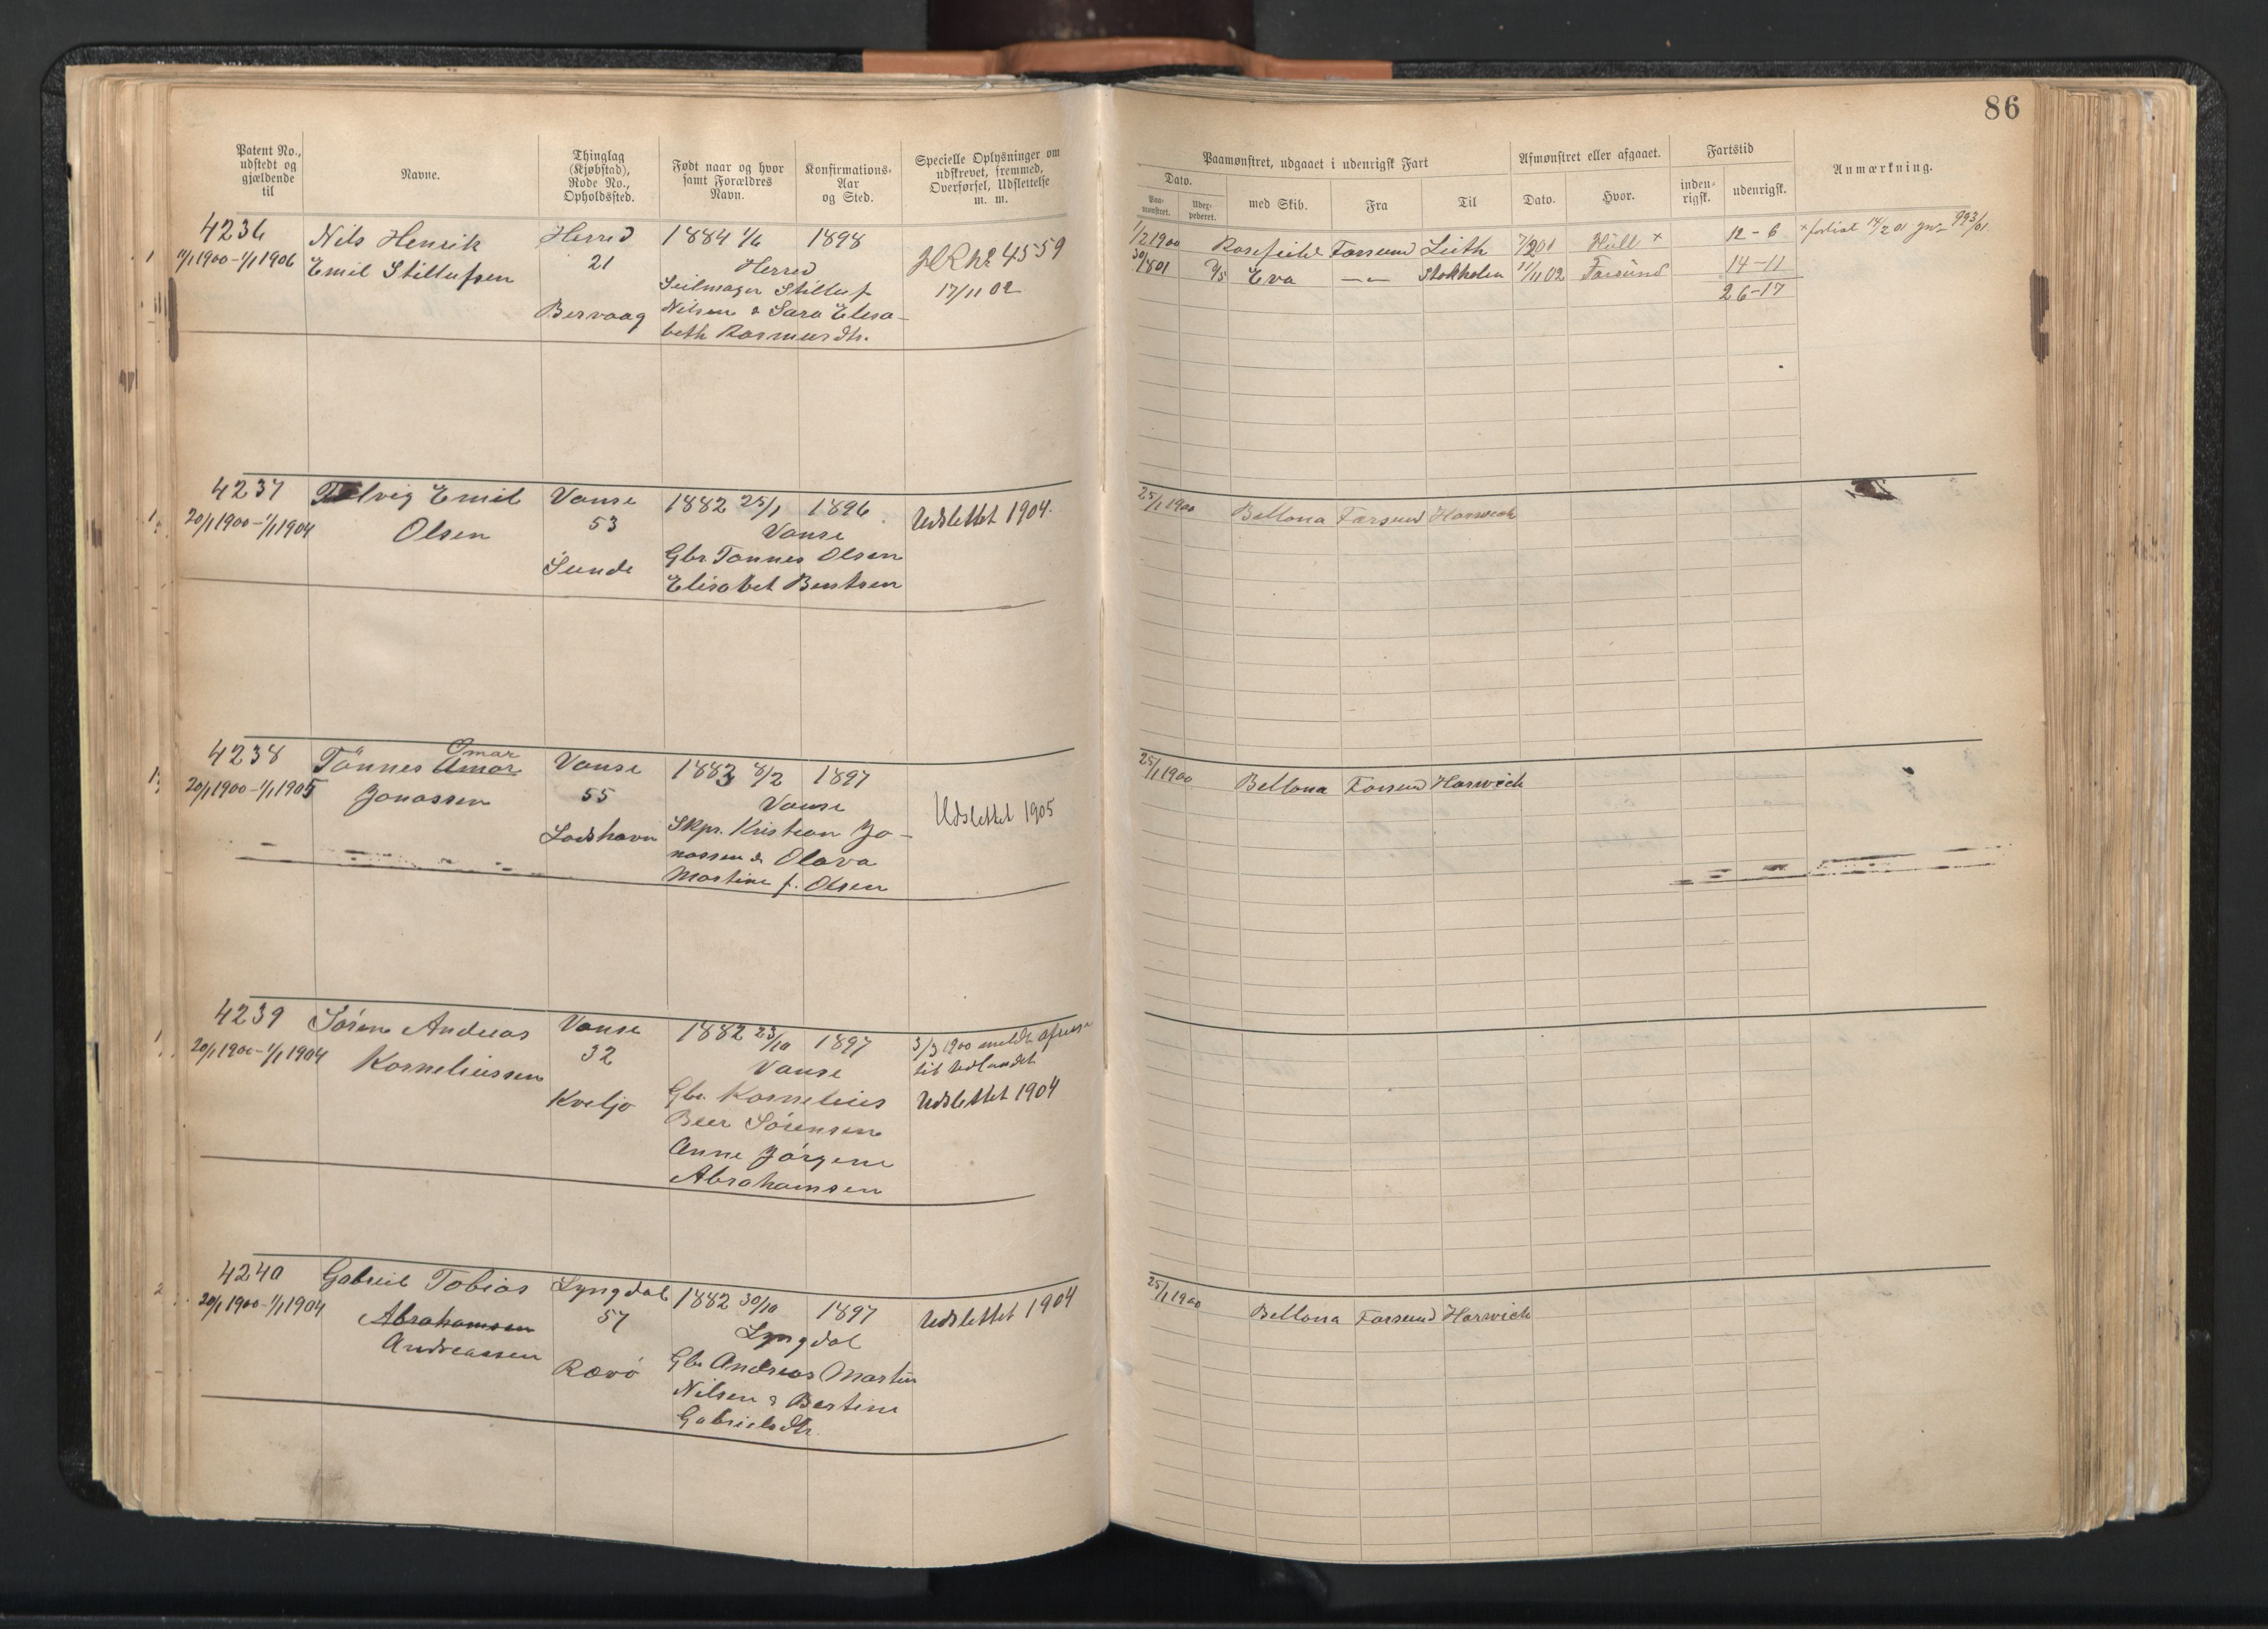 86
Patent No., udstedt og gjældende til
Navne.
Thinglag (Kjøbstad), Rode No., Opholdssted.
Født naar og hvor samt Forældres Navn.
Konfirmations-Aar og Sted.
Specielle Oplysninger om udskrevet, fremmed, Overførsel, Udslettelse m. m.
Paamønstret, udgaaet i udenrigsk Fart
Dato.
Paa-mønstret.
med Skib.
Fra
Til
Afmønstret eller afgaaet.
Dato.
Hvor.
Fartstid
inden-rigsk.
udenrigsk.
Anmærkning.
4236
11/1 1900 - 1/1 1906
Nils Henrik
Emil Stillufsen
Herred
21
Bervaag
1884 1/6
1898
Herred
Seilmager Stilluf
Nilsen & Sara Elesa-
beth Rasmusdtr.
HR No 4559
17/11 02
1/2 1900 Rosefield Farsund Leith 7/2 01 Hull × 12-6
30/4 1801 Eva -"- Stokholm 11/11 02 Farsund 14-11
26-17
4237
20/1 1900 - 1/1 1904
Tolvig Emil
Olsen
Vanse
53
Sunde
1882 25/1
1896
Vanse
Gbr. Tønnes Olsen
Elisabet Bentsen
Udslettet 1904.
25/1 1900 Bellona Farsund Harwich
4238
20/1 1900 - 1/1 1905
Omar
Tönnes Amor
Jonassen
Vanse
55
Loshavn
1883 8/2
1897
Vanse
Skpr. Kristian Jo-
nassen & Olava
Martine f. Olsen
Udslettet 1905
25/1 1900 Bellona Farsund Harwich
4239
20/1 1900 - 1/1 1904
Søren Andreas
Korneliussen
Vanse
32
Kveljo
1882 23/10
1897
Vanse
Gbr. Kornelius
Beer Sørensen
Anne Jørgine
Abrahamsen
3/3 1900 meldt afreise
til Udlandet
Udslettet 1904
4240
20/1 1900 - 1/1 1904
Gabriel Tobias
Abrahamsen
Andreassen
Lyngdal
57
Rævø
1882 30/10
1897
Lyngdal
Gbr Andreas Martin
Nilsen & Bertine
Gabrielsdtr.
Udslettet 1904
25/1 1900 Bellona Farsund Harwich